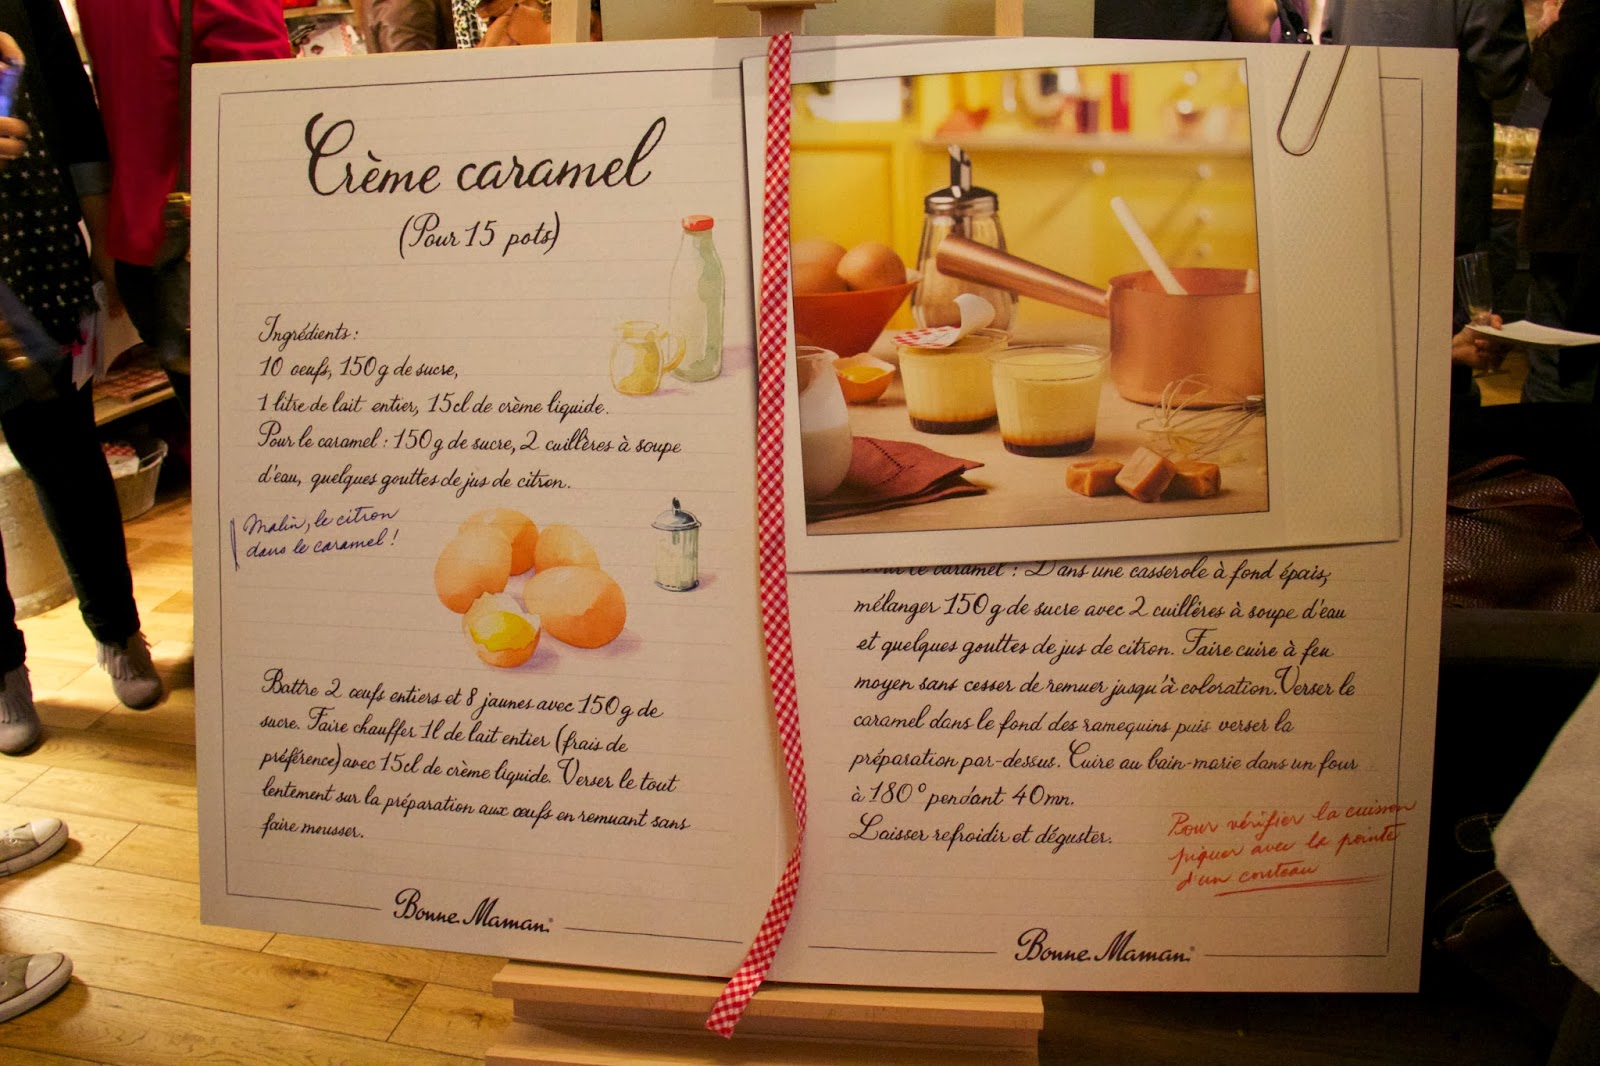 Crème caramel
(Pour 15 pots)
Ingrédients :
10 oeufs, 150g de sucre,
1 litre de lait entier, 15cl de crème liquide.
Pour le caramel : 150g de sucre, 2 cuillères à soupe
d'eau, quelques gouttes de jus de citron.
Malin, le citron
dans le caramel !
Battre 2 œufs entiers et 8 jaunes avec 150g de
sucre. Faire chauffer 1l de lait entier (frais de
préférence) avec 15cl de crème liquide. Verser le tout
lentement sur la préparation aux œufs en remuant sans
faire mousser.
Bonne Maman®
Pour le caramel : Dans une casserole à fond épais,
mélanger 150g de sucre avec 2 cuillères à soupe d'eau
et quelques gouttes de jus de citron. Faire cuire à feu
moyen sans cesser de remuer jusqu'à coloration. Verser le
caramel dans le fond des ramequins puis verser la
préparation par-dessus. Cuire au bain-marie dans un four
à 180° pendant 40mn.
Laisser refroidir et déguster.
Pour vérifier la cuisson
piquer avec la pointe
d'un couteau
Bonne Maman®